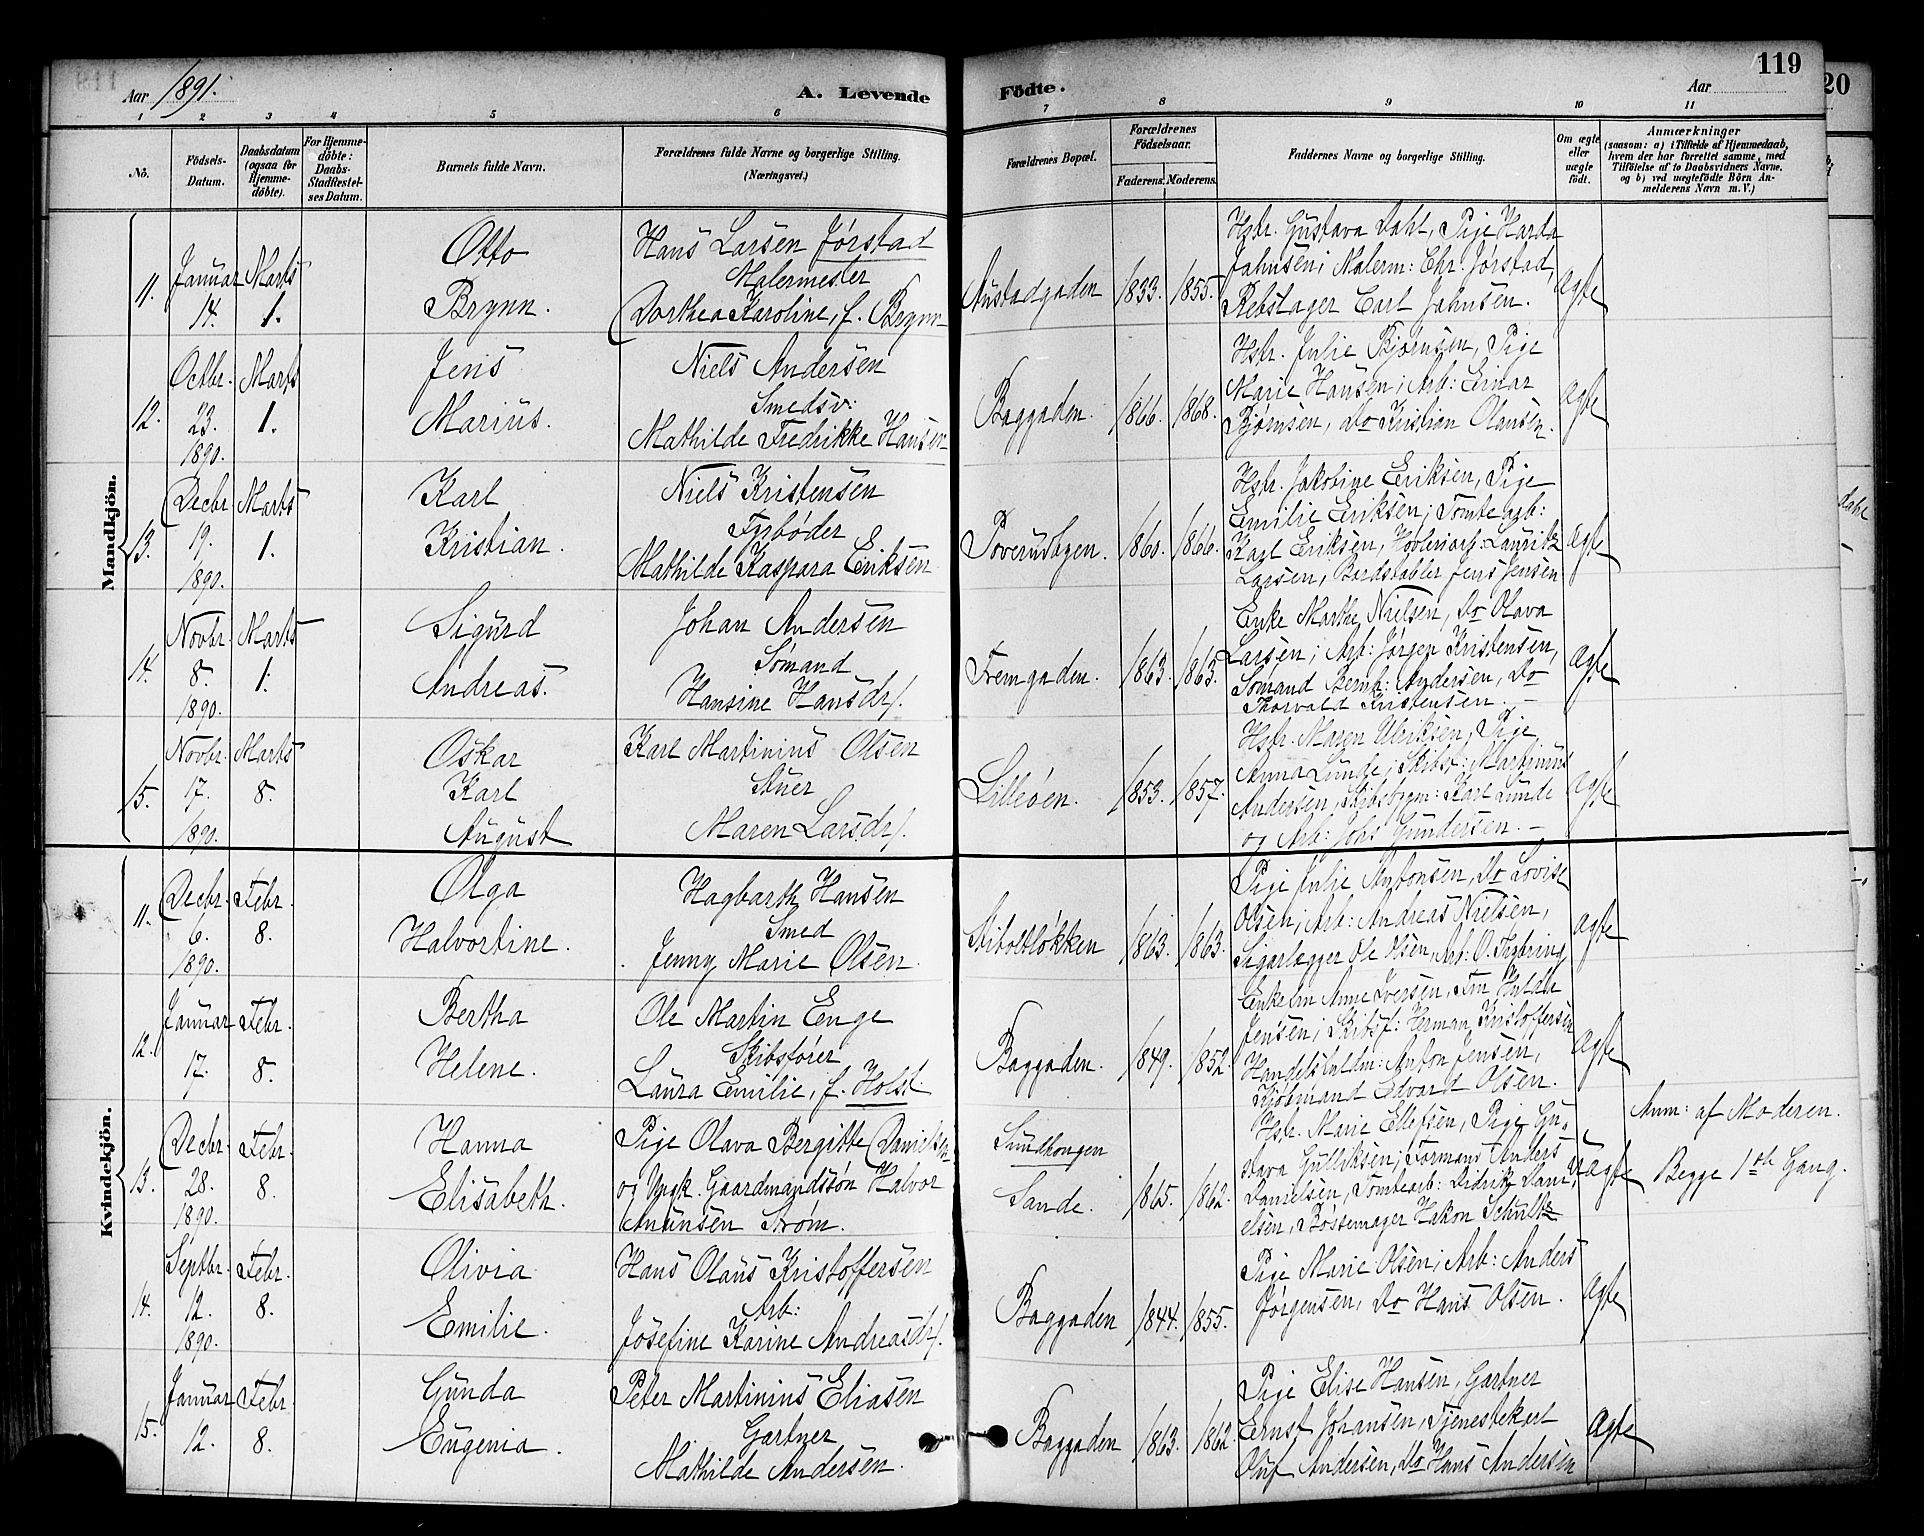 119
Aar 1891.
A. Levende Födte.
Aar
1 2 3 4 5 6 7 8 9 10 11
No.
Födsels-Datum.
Daabsdatum (ogsaa for Hjemme-döbte).
For Hjemme-döbte: Daabs-Stadfæstelses Datum.
Barnets fulde Navn.
Forældrenes fulde Navne og borgerlige Stilling. (Næringsvei.)
Forældrenes Bopæl.
Forældrenes Födselsaar.
Faderens. Moderens.
Faddernes Navne og borgerlige Stilling.
Om ægte eller uægte födt.
Anmærkninger
(saasom: a) i Tilfælde af Hjemmedaab, hvem der har forrettet samme, med Tilföielse af to Daabsvidners Navne, og b) ved uægtefödte Börn Anmelderens Navn m. V.)
Mandkjön.
11. Januar 14. Marts 1.
Otto Brynn.
Hans Larsen Jørstad
Malermester
Dorthea Karoline, f. Brynn
1833. 1855.
Hstr. Gustava Dahl, Pige Harda
Jahnsen; Malerm: Chr. Jørstad,
Rebslager Carl Jahnsen.
Ægte
12. Octbr. 23. 1890. Marts 1.
Jens Marius.
Niels Andersen
Smedsv:
Mathilde Fredrikke Hansen
Baggaden. 1866. 1868.
Hstr. Julie Bjørnsen, Pige
Marie Hansen; Arb: Einar
Bjørnsen, do Kristian Olausen.
Ægte
13. Decbr. 19. 1890. Marts 1.
Karl Kristian.
Niels Kristensen
Fyrbøder
Mathilde Kaspara Eriksen
1860. 1866.
Hstr. Jakobine Eriksen, Pige
Emilie Eriksen; Tomtearb:
Karl Eriksen, Høvleriarb: Lauritz
Larsen, Bordstabler Jens Jensen
Ægte
14. Novbr. 8. 1890. Marts 1.
Sigurd Andreas.
Johan Andersen
Sømand
Hansine Hansdr.
Fremgaden. 1863. 1863.
Enke Marthe Nielsen, Do Olava
Larsen; Arb: Jørgen Kristensen,
Sømand Bernh: Andersen, Do
Thorvald Kristensen.
Ægte
15. Novbr. 17. 1890. Marts 8.
Oskar Karl August
Karl Martinius Olsen
Stuer
Maren Larsdr.
Lilleøen. 1853. 1857.
Hstr. Maren Ulriksen, Pige
Anna Lunde; Skibst: Martinius
Andersen, Skibstøm: Karl Lunde
og Arb: Johs Gundersen.
Ægte
Kvindekjön.
11. Decbr. 6. 1890. Febr. 8.
Olga Halvortine.
Hagbarth Hansen
Smed
Jenny Marie Olsen
Stiboltløkken 1863. 1863.
Pige Julie Antonsen, Do Lovise
Olsen; Arb: Andreas Nielsen,
Sigarlægger Ole Olsen, Arb: O.
Ægte
12. Januar 17. Febr. 8.
Bertha Helene.
Ole Martin Enge
Skibsfører
Laura Emilie, f. Holst
Baggaden. 1849. 1852.
Enkefru Anne Iversen, Fru Hulda
Jensen; Skibsf: Herman Kristoffersen
Handelsfuldm: Anton Jensen,
Kjøbmand Edvard Olsen.
Ægte
13. Decbr. 28. 1890. Febr. 8.
Hanna Elisabeth.
Pige Olava Bergitte Danielsen
og Ungk. Gaardmandssøn Halvor
Amundsen Strøm.
Sundhougen
Sande. 1865. 1862.
Hstr. Marie Ellefsen, Pige Gu-
stava Gulliksen; Formand Anders
Danielsen, Tomtearb: Didrik Dani-
elsen, Bøssemager Hakon Schultz
Uægte
Anm: af Moderen.
Begge 1ste Gang.
14. Septbr. 12. 1890. Febr. 8.
Olivia Emilie.
Hans Olaus Kristoffersen
Arb:
Josefine Karine Andreasdr.
Baggaden 1844. 1855.
Pige Marie Olsen; Arb: Anders
Jørgensen, Do Hans Olsen.
Ægte
15. Januar 12. Febr. 8.
Gunda Eugenia.
Peter Martinius Eliasen
Gartner
Mathilde Andersen.
Baggaden 1863. 1862.
Pige Elise Hansen, Gartner
Ernst Johansen, Tjenestekarl
Oluf Andersen, Do Hans Andersen
Ægte